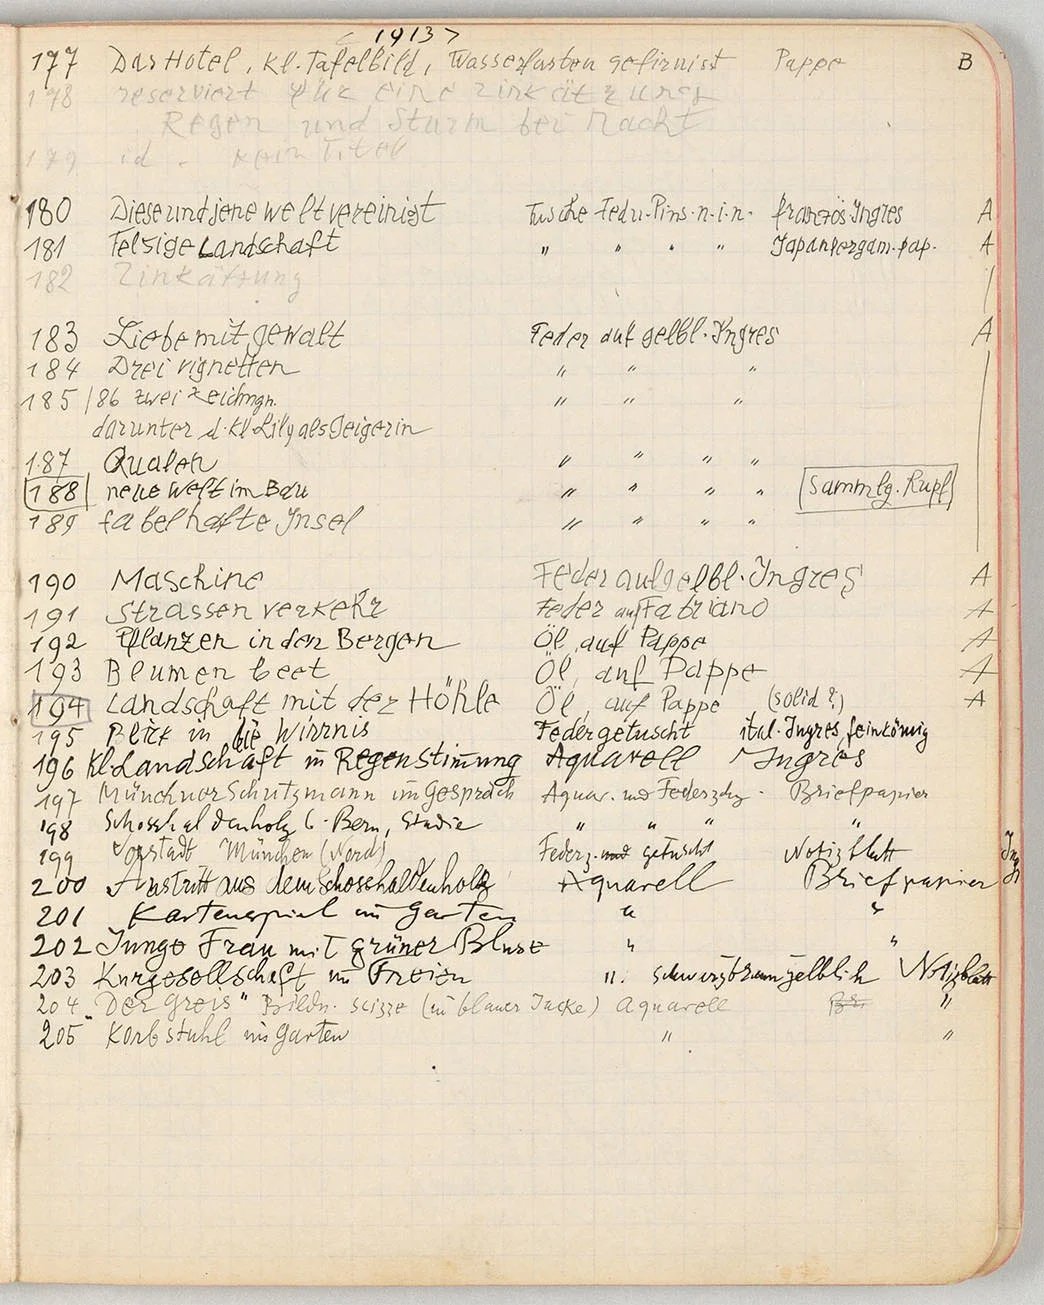 < 1913 >
177 Das Hotel, kl. Tafelbild, Wasserfarben gefirnisst Pappe B
178 reserviert für eine Zinkätzung
Regen und Sturm bei Nacht
179 id. kein Titel
180 Diese und jene welt vereinigt Tusche Fedr. Pins. n. i. n. französ. Ingres A
181 Felsige Landschaft " " " " Japanpergam. pap. A
182 Zinkätzung
183 Liebe mit gewalt Feder auf gelbl. Ingres A
184 Drei vignetten " " "
185 /86 zwei zeichngn. " " "
darunter d. kl. Lily als Geigerin
187 Qualen " " " "
188 neue Welt im Bau " " " " Sammlg. Rupf
189 fabelhafte Insel " " " "
190 Maschine Feder auf gelbl. Ingres A
191 Strassenverkehr Feder auf Fabriano A
192 Pflanzen in den Bergen Öl auf Pappe A
193 Blumenbeet Öl, auf Pappe A
194 Landschaft mit der Höhle Öl, auf Pappe (solid?) A
195 Blick in die Wirrnis Feder getuscht ital. Ingres feinkörnig
196 Kl. Landschaft in Regenstimung Aquarell Ingres
197 Münchner Schutzmann im Gespräch Aquar. und Federzchg. Briefpapier
198 Schosshaldenholz b. Bern, Studie " " " "
199 Vorstadt München (Nord) Federz. und getuscht Notizblatt
200 Austritt aus dem Schosshaldenholz Aquarell Briefpapier
201 Kartenspiel im Garten " "
202 Junge Frau mit grüner Bluse " "
203 Kurgesellschaft im Freien ". schwarzbraungelblich Notizblatt
204 „Der Greis" Bildn. scizze (in blauer Jacke) Aquarell Br. "
205 Korbstuhl im Garten " "